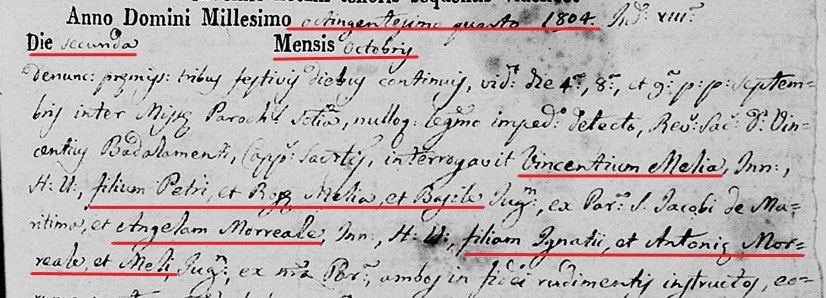 Anno Domini Millesimo octingentesimo quarto 1804. Ind: XIII:
Die secunda Mensis Octobris
Denunc: premis: tribus festivis diebus continuis, vid: die 4:, 8:, et 9: p: p: Septem=
bris inter Miss: Paroch: Solia, nulloq: legmo imped: detecto, Rev: Sac: D: Vin=
centius Badalamenti, Capp: Sacrtis, interrogavit Vincentium Melia, Inn:,
H: U:, filium Petri, et Ros Melia, et Basile Jug:, ex Par: S. Jacobi de Ma=
ritima, et Angelam Morreale, Inn:, H: U:, filiam Ignatii, et Antoniq Mor=
reale, et Meli, Jug:, ex mra Par:, ambos in fidei rudimentis instructos, eo=